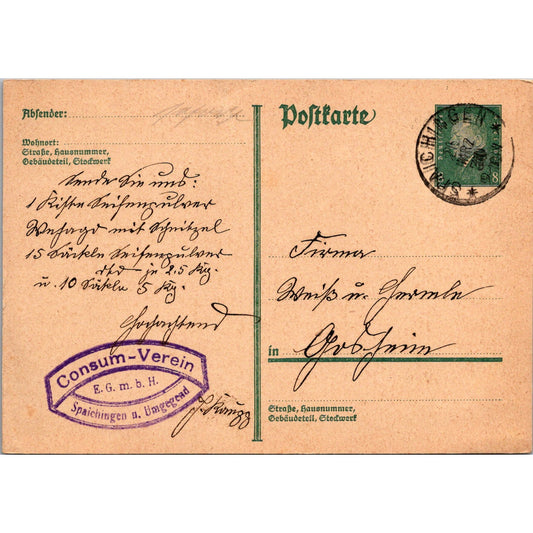 Absender:
Wohnort:
Straße, Hausnummer,
Gebäudeteil, Stockwerk
Sende Sie uns:
1 Kiste Seifenpulver
mit Schnitzel
15 Säckle Seifenpulver
je 2.5 Kg.
u. 10 Säkle 5 Kg.
Hochachtend
Consum-Verein
E. G. m. b. H.
Spaichingen u. Umgegend
Postkarte
SPAICHINGEN
8
Firma
Weiß u. Hermle
in Gosheim
Straße, Hausnummer,
Gebäudeteil, Stockwerk